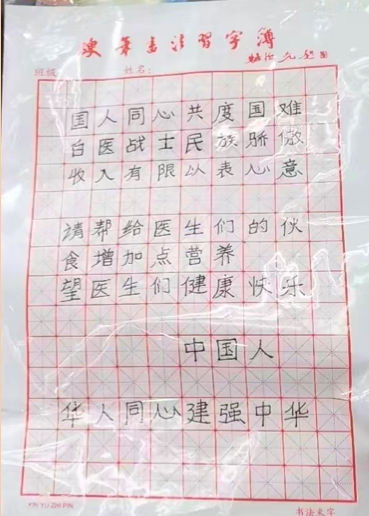 硬笔书法習字簿
班级: 姓名:
国人同心共度国难
白医战士民族骄傲
收入有限以表心意
请帮给医生们的伙
食增加点营养
望医生们健康快乐
中国人
华人同心建强中华
YIN YU ZHI PIN
书法文字